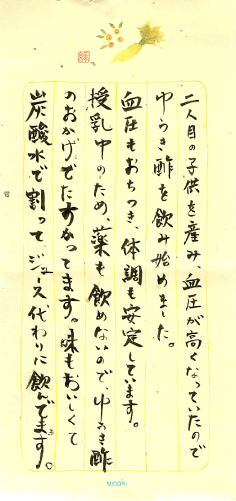 二人目の子供を産み、血圧が高くなっていたので
ゆうき酢を飲み始めました。
血圧もおちつき、体調も安定しています。
授乳中のため、薬も飲めないので、ゆうき酢
のおかげでたすかってます。味もおいしくて
炭酸水で割って、ジュース代わりに飲んでます。
MIDORI